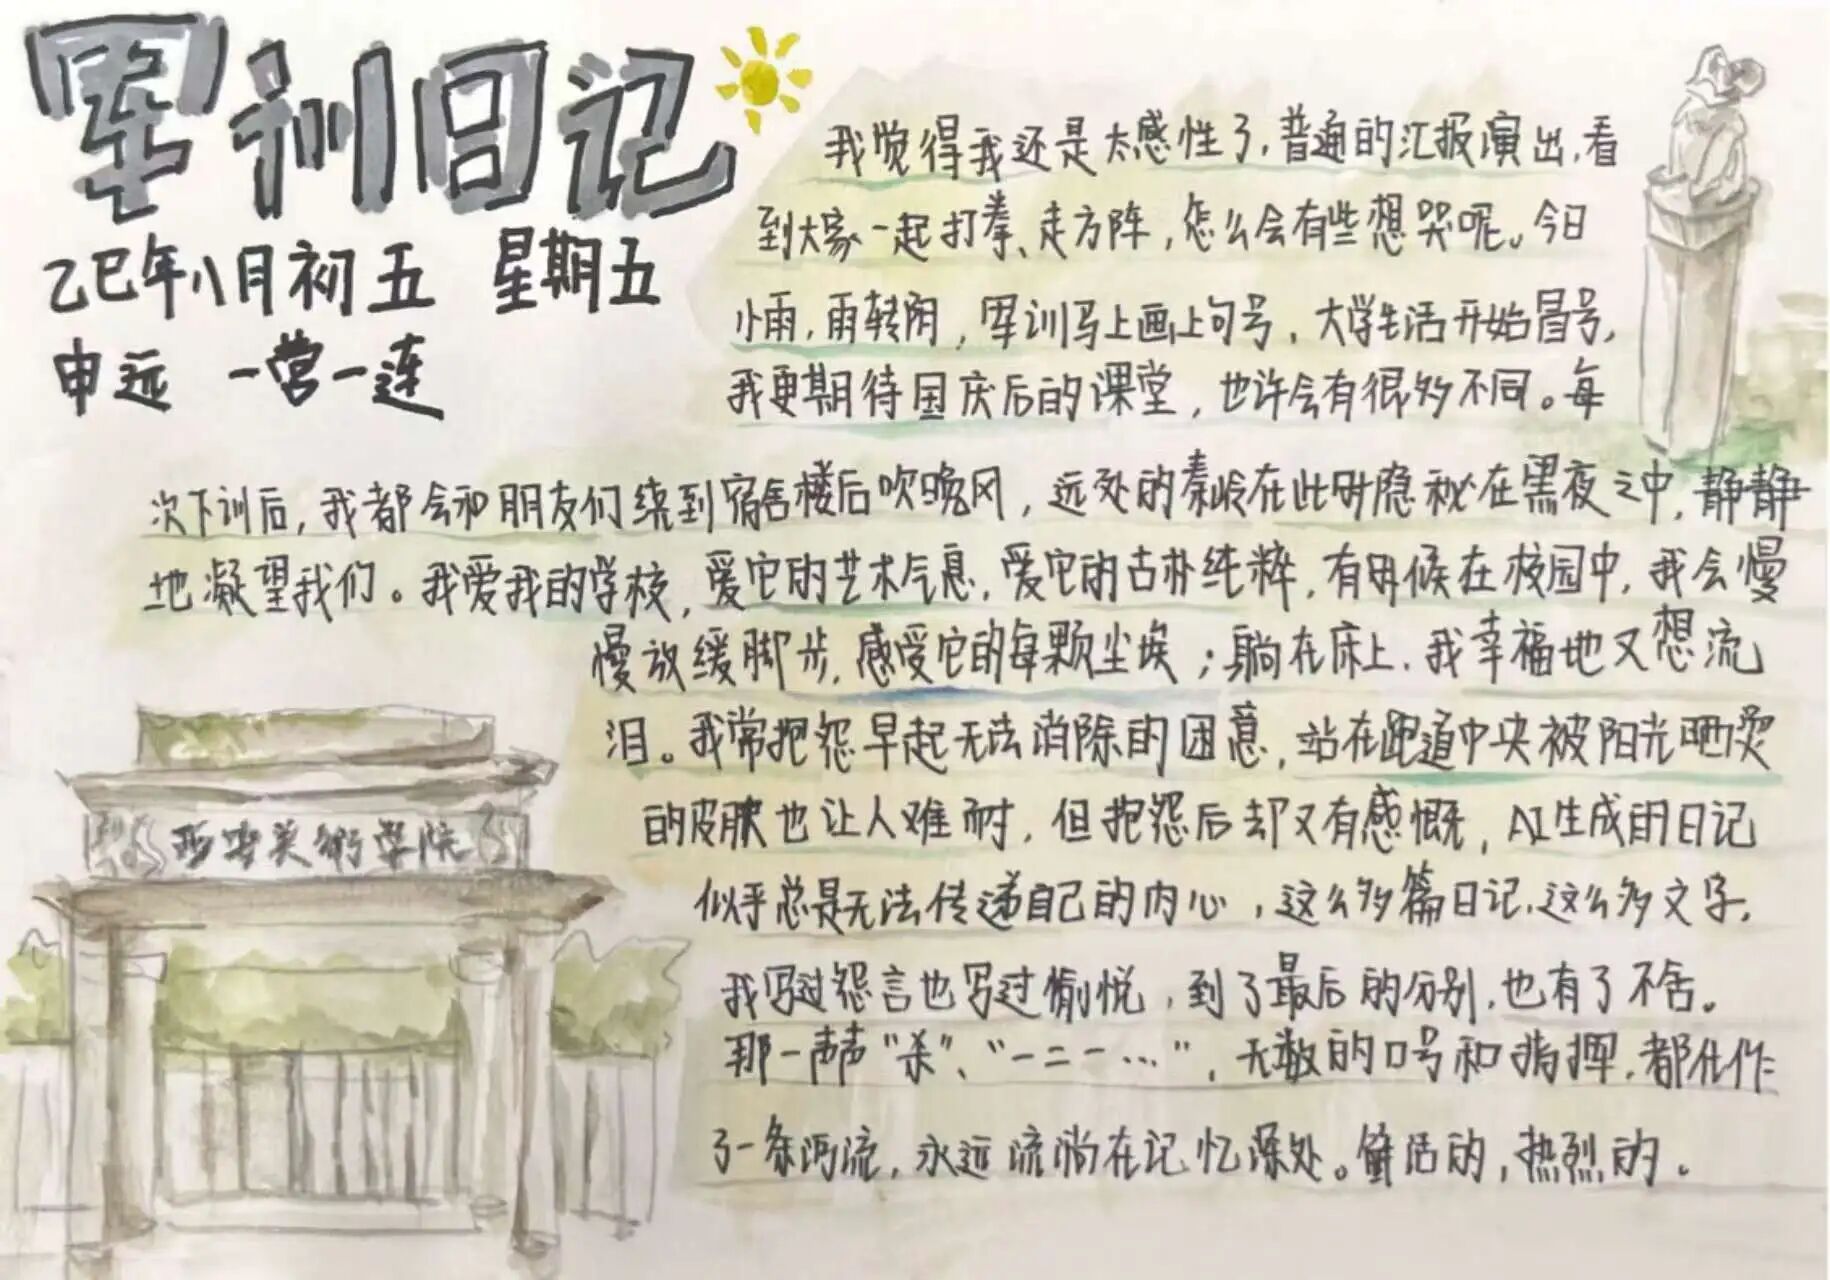 军训日记
乙巳年八月初五 星期五
申远 一营一连
我觉得我还是太感性了，普通的汇报演出，看
到大家一起打拳、走方阵，怎么会有些想哭呢。今日
小雨，雨转阴，军训马上画上句号，大学生活开始冒号，
我更期待国庆后的课堂，也许会有很多不同。每
次下训后，我都会和朋友们绕到宿舍楼后吹晚风，远处的秦岭在此时隐秘在黑夜之中，静静
地凝望我们。我爱我的学校，爱它的艺术气息，爱它的古朴纯粹，有时候在校园中，我会慢
慢放缓脚步，感受它的每颗尘埃；躺在床上，我幸福地又想流
泪。我常抱怨早起无法消除的困意，站在跑道中央被阳光晒烫
的皮肤也让人难耐，但抱怨后却又有感慨，AI生成的日记
似乎总是无法传递自己的内心，这么多篇日记，这么多文字，
我写过怨言也写过愉悦，到了最后的分别，也有了不舍。
那一声声“杀”、“一二一…”，无数的口号和指挥，都化作
了一条河流，永远流淌在记忆深处。鲜活的，热烈的。
西安美術学院